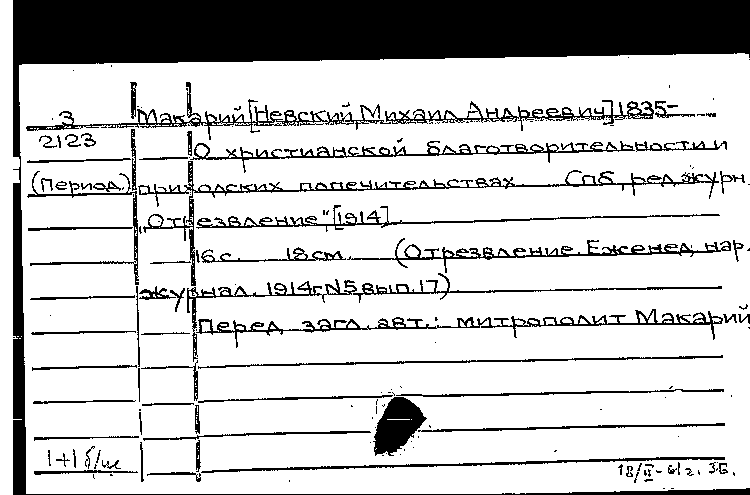 3 Макарий [Невский, Михаил Андреевич] 1835-
2123 О христианской благотворительности и
(Период.) приходских попечительствах. Спб, ред. журн.
"Отрезвление", [1914].
16 с. 18 см. (Отрезвление. Еженед. нар.
журнал. 1914г, N5, вып. 17)
Перед загл. авт.: митрополит Макарий
1+1 б/ш 18/II-61г. ЗБ.